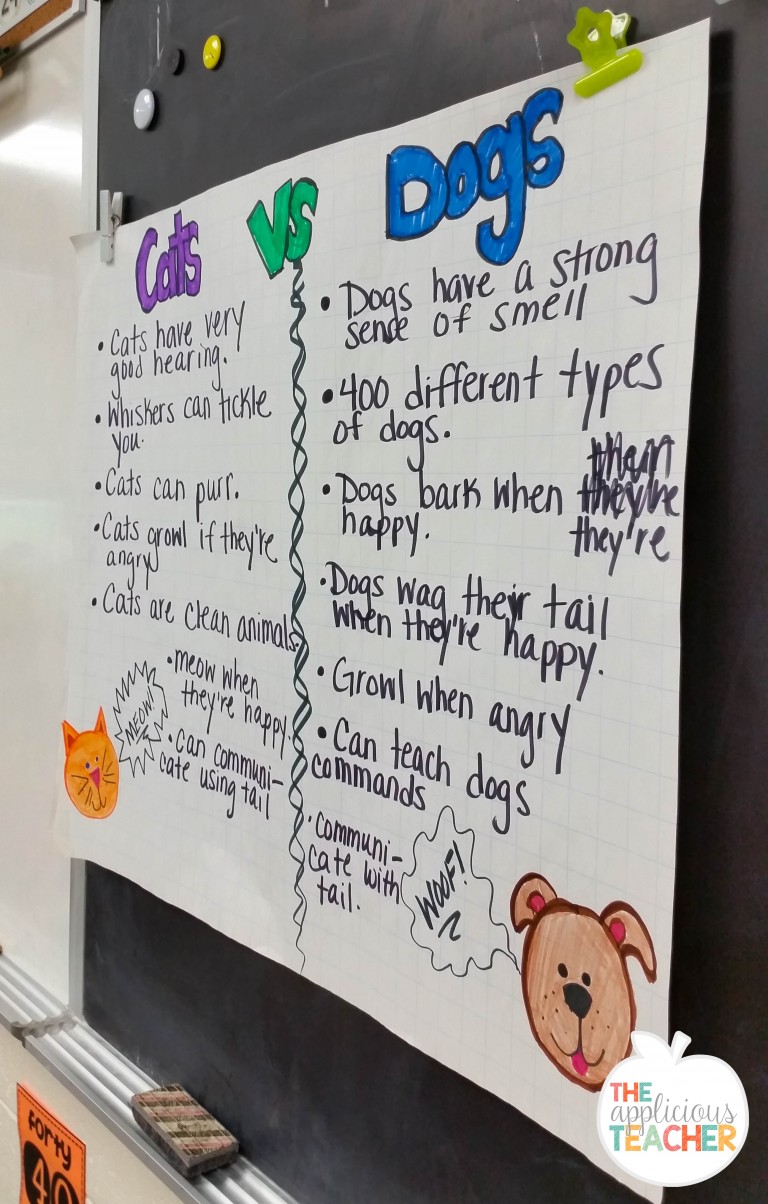 Cats
vs
Dogs
• Cats have very
good hearing.
• Whiskers can tickle
you.
• Cats can purr.
• Cats growl if they're
angry
• Cats are clean animals
• meow when
they're happy.
• can communi-
cate using tail
MEOW!
• Dogs have a strong
sense of smell
• 400 different types
of dogs.
• Dogs bark when they're
happy.
• Dogs wag their tail
when they're happy.
• Growl when angry
• Can teach dogs
commands
• communi-
cate with
tail.
WOOF!
forty
40
THE
applicious
TEACHER